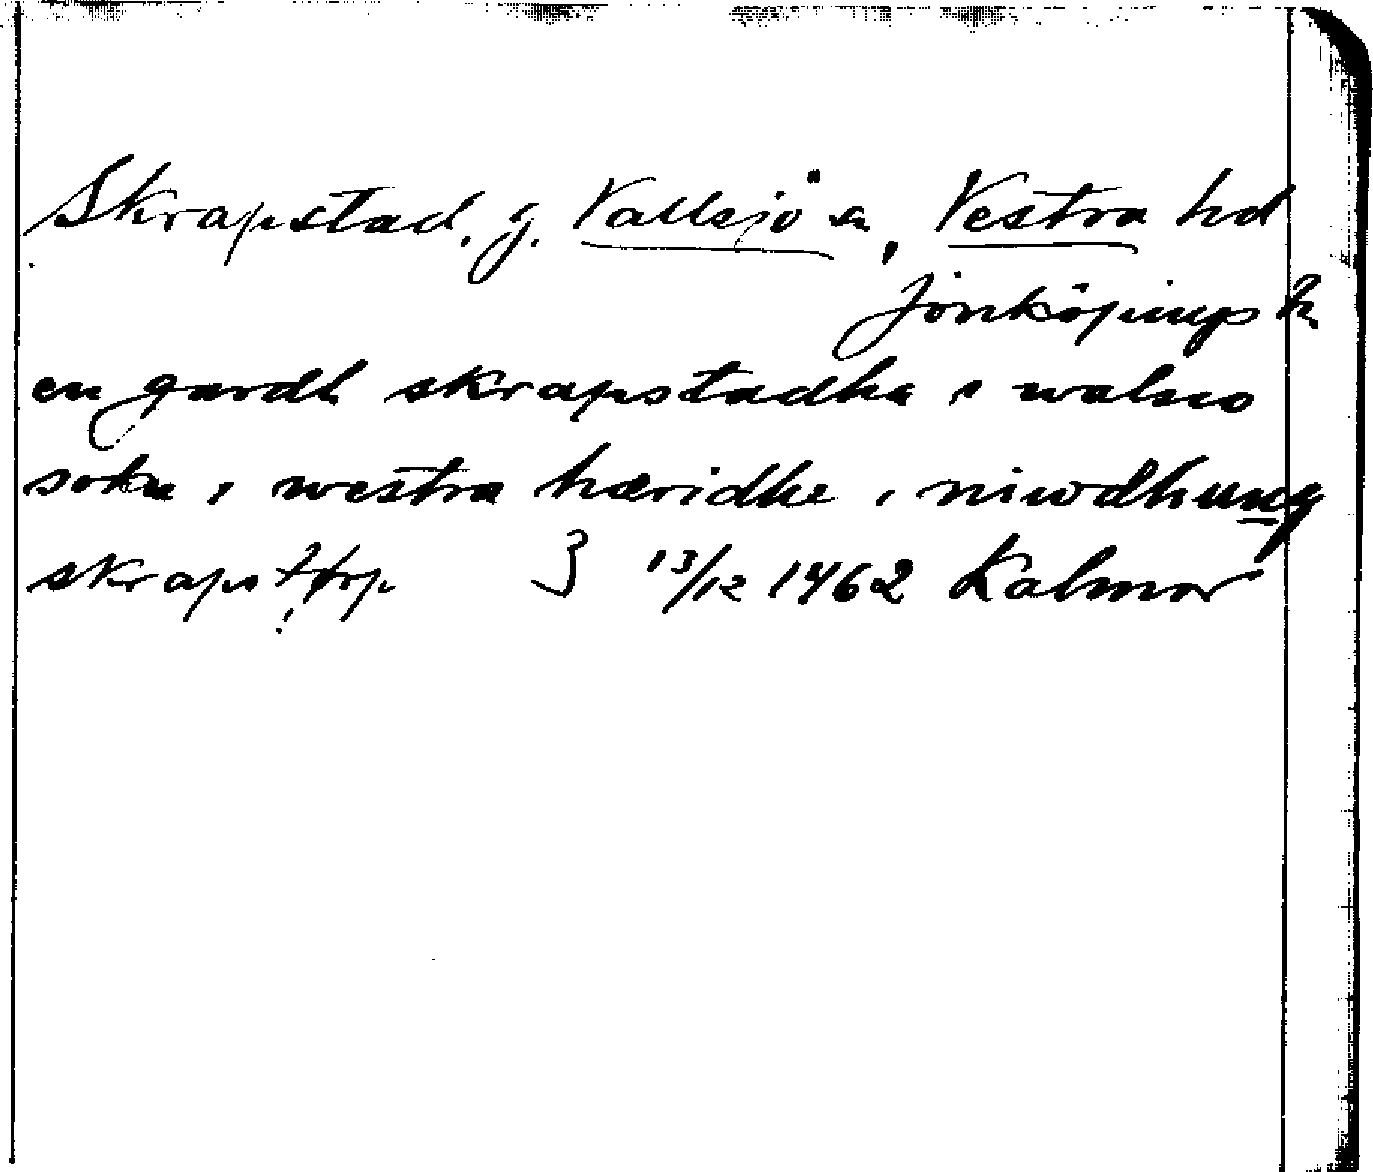 Skrapstad, g. Vallsjö sn, Vestra hd
Jönköpings l.
en gardh skrapstadha i walsio
sokn i westra hæridhe i niwdhung
skrapstorp 13/12 1462 Kalmar